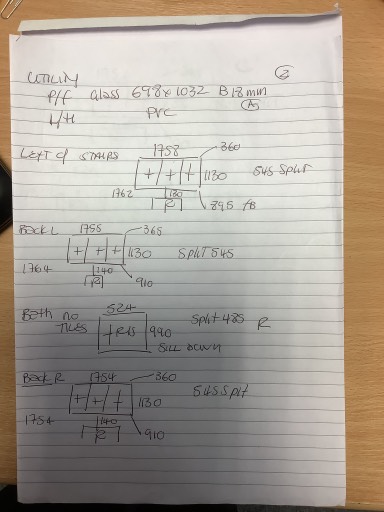 UTILITY ②
P/C Glass 698 x 1032 B 18mm
L/H PVC Ⓐ
LEFT of STAIRS 1758 360
1130 545 Split
1762 130 895 FB
R
Back L 1755 365
1130 Split 545
1764 140 910
R
Both no TILES 524
990 Split 485 R
SILL DOWN
Back R 1754 360
1130 545 Split
1754 140 910
R